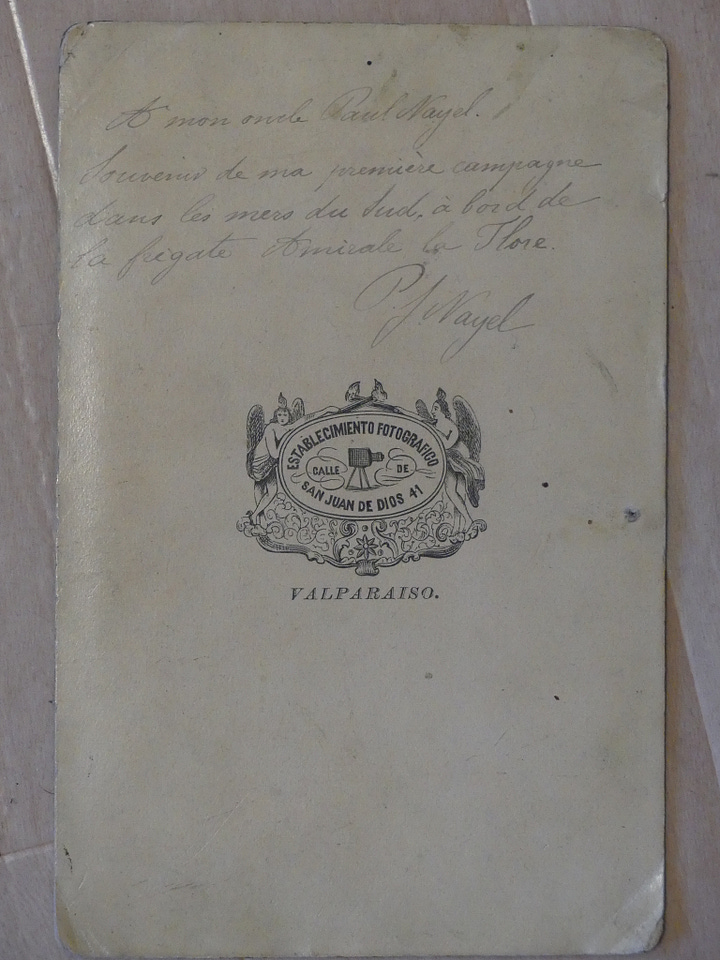 A mon oncle Paul Nayel.
Souvenir de ma première campagne
dans les mers du Sud, à bord de
la frégate Amirale la Flore.
P. J. Nayel
ESTABLECIMIENTO FOTOGRAFICO
CALLE DE
SAN JUAN DE DIOS 41
VALPARAISO.